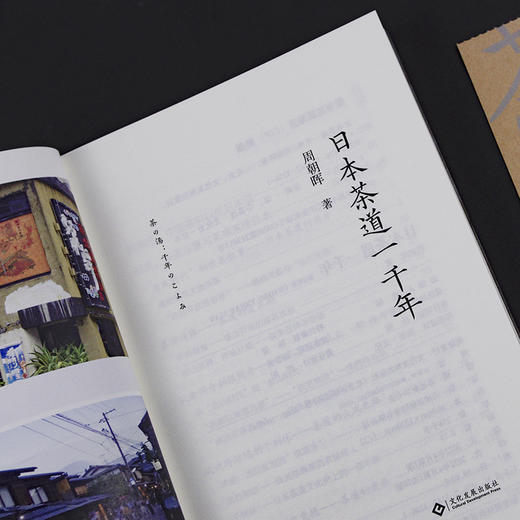 日本茶道一千年
周朝晖 著
茶の湯：千年のこよみ
文化发展出版社
Cultural Development Press